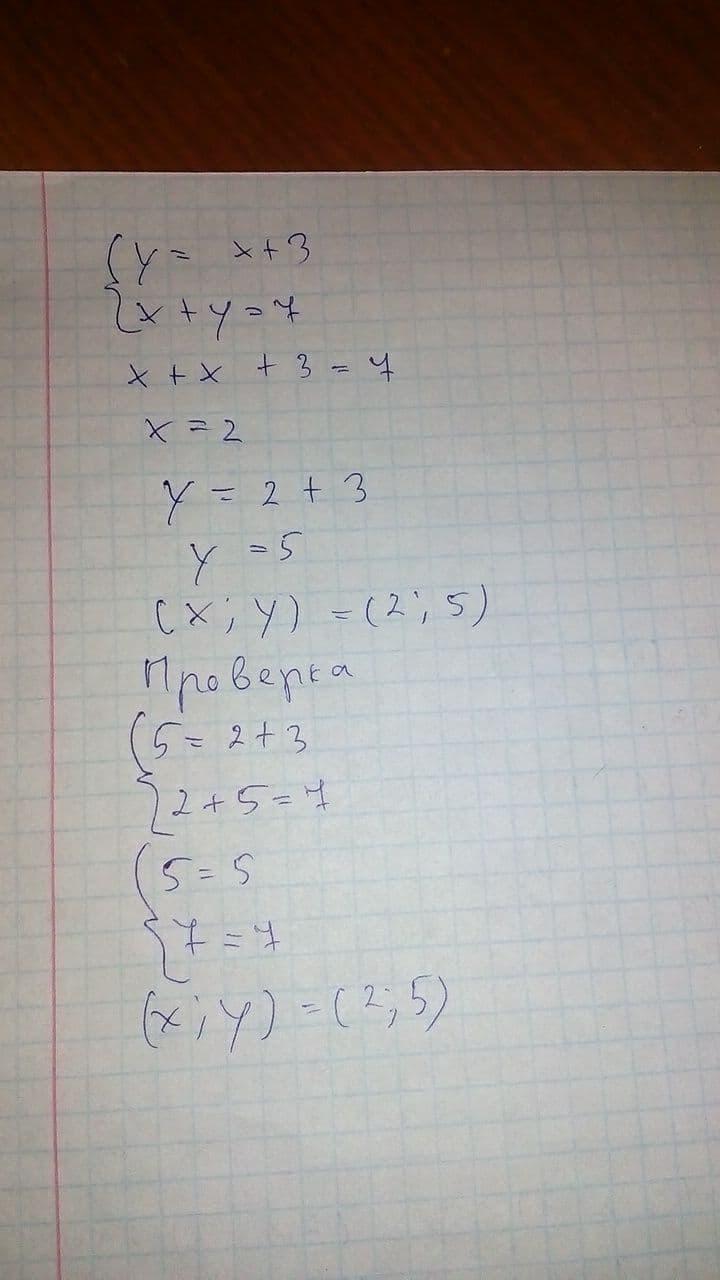 {y = x + 3
{x + y = 7
x + x + 3 = 7
x = 2
y = 2 + 3
y = 5
(x; y) = (2; 5)
Проверка
{5 = 2 + 3
{2 + 5 = 7
{5 = 5
{7 = 7
(x; y) = (2; 5)